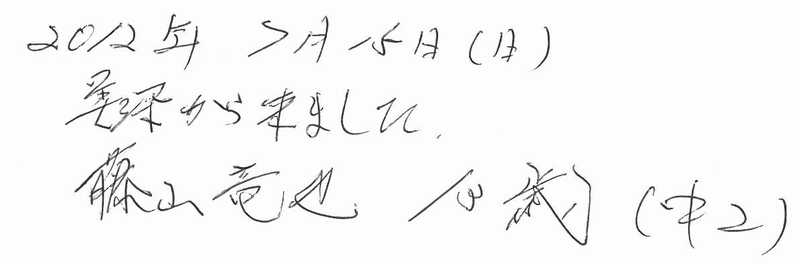 2012年 7月15日(日)
美深から来ました.
藤山竜也 歳 (中2)